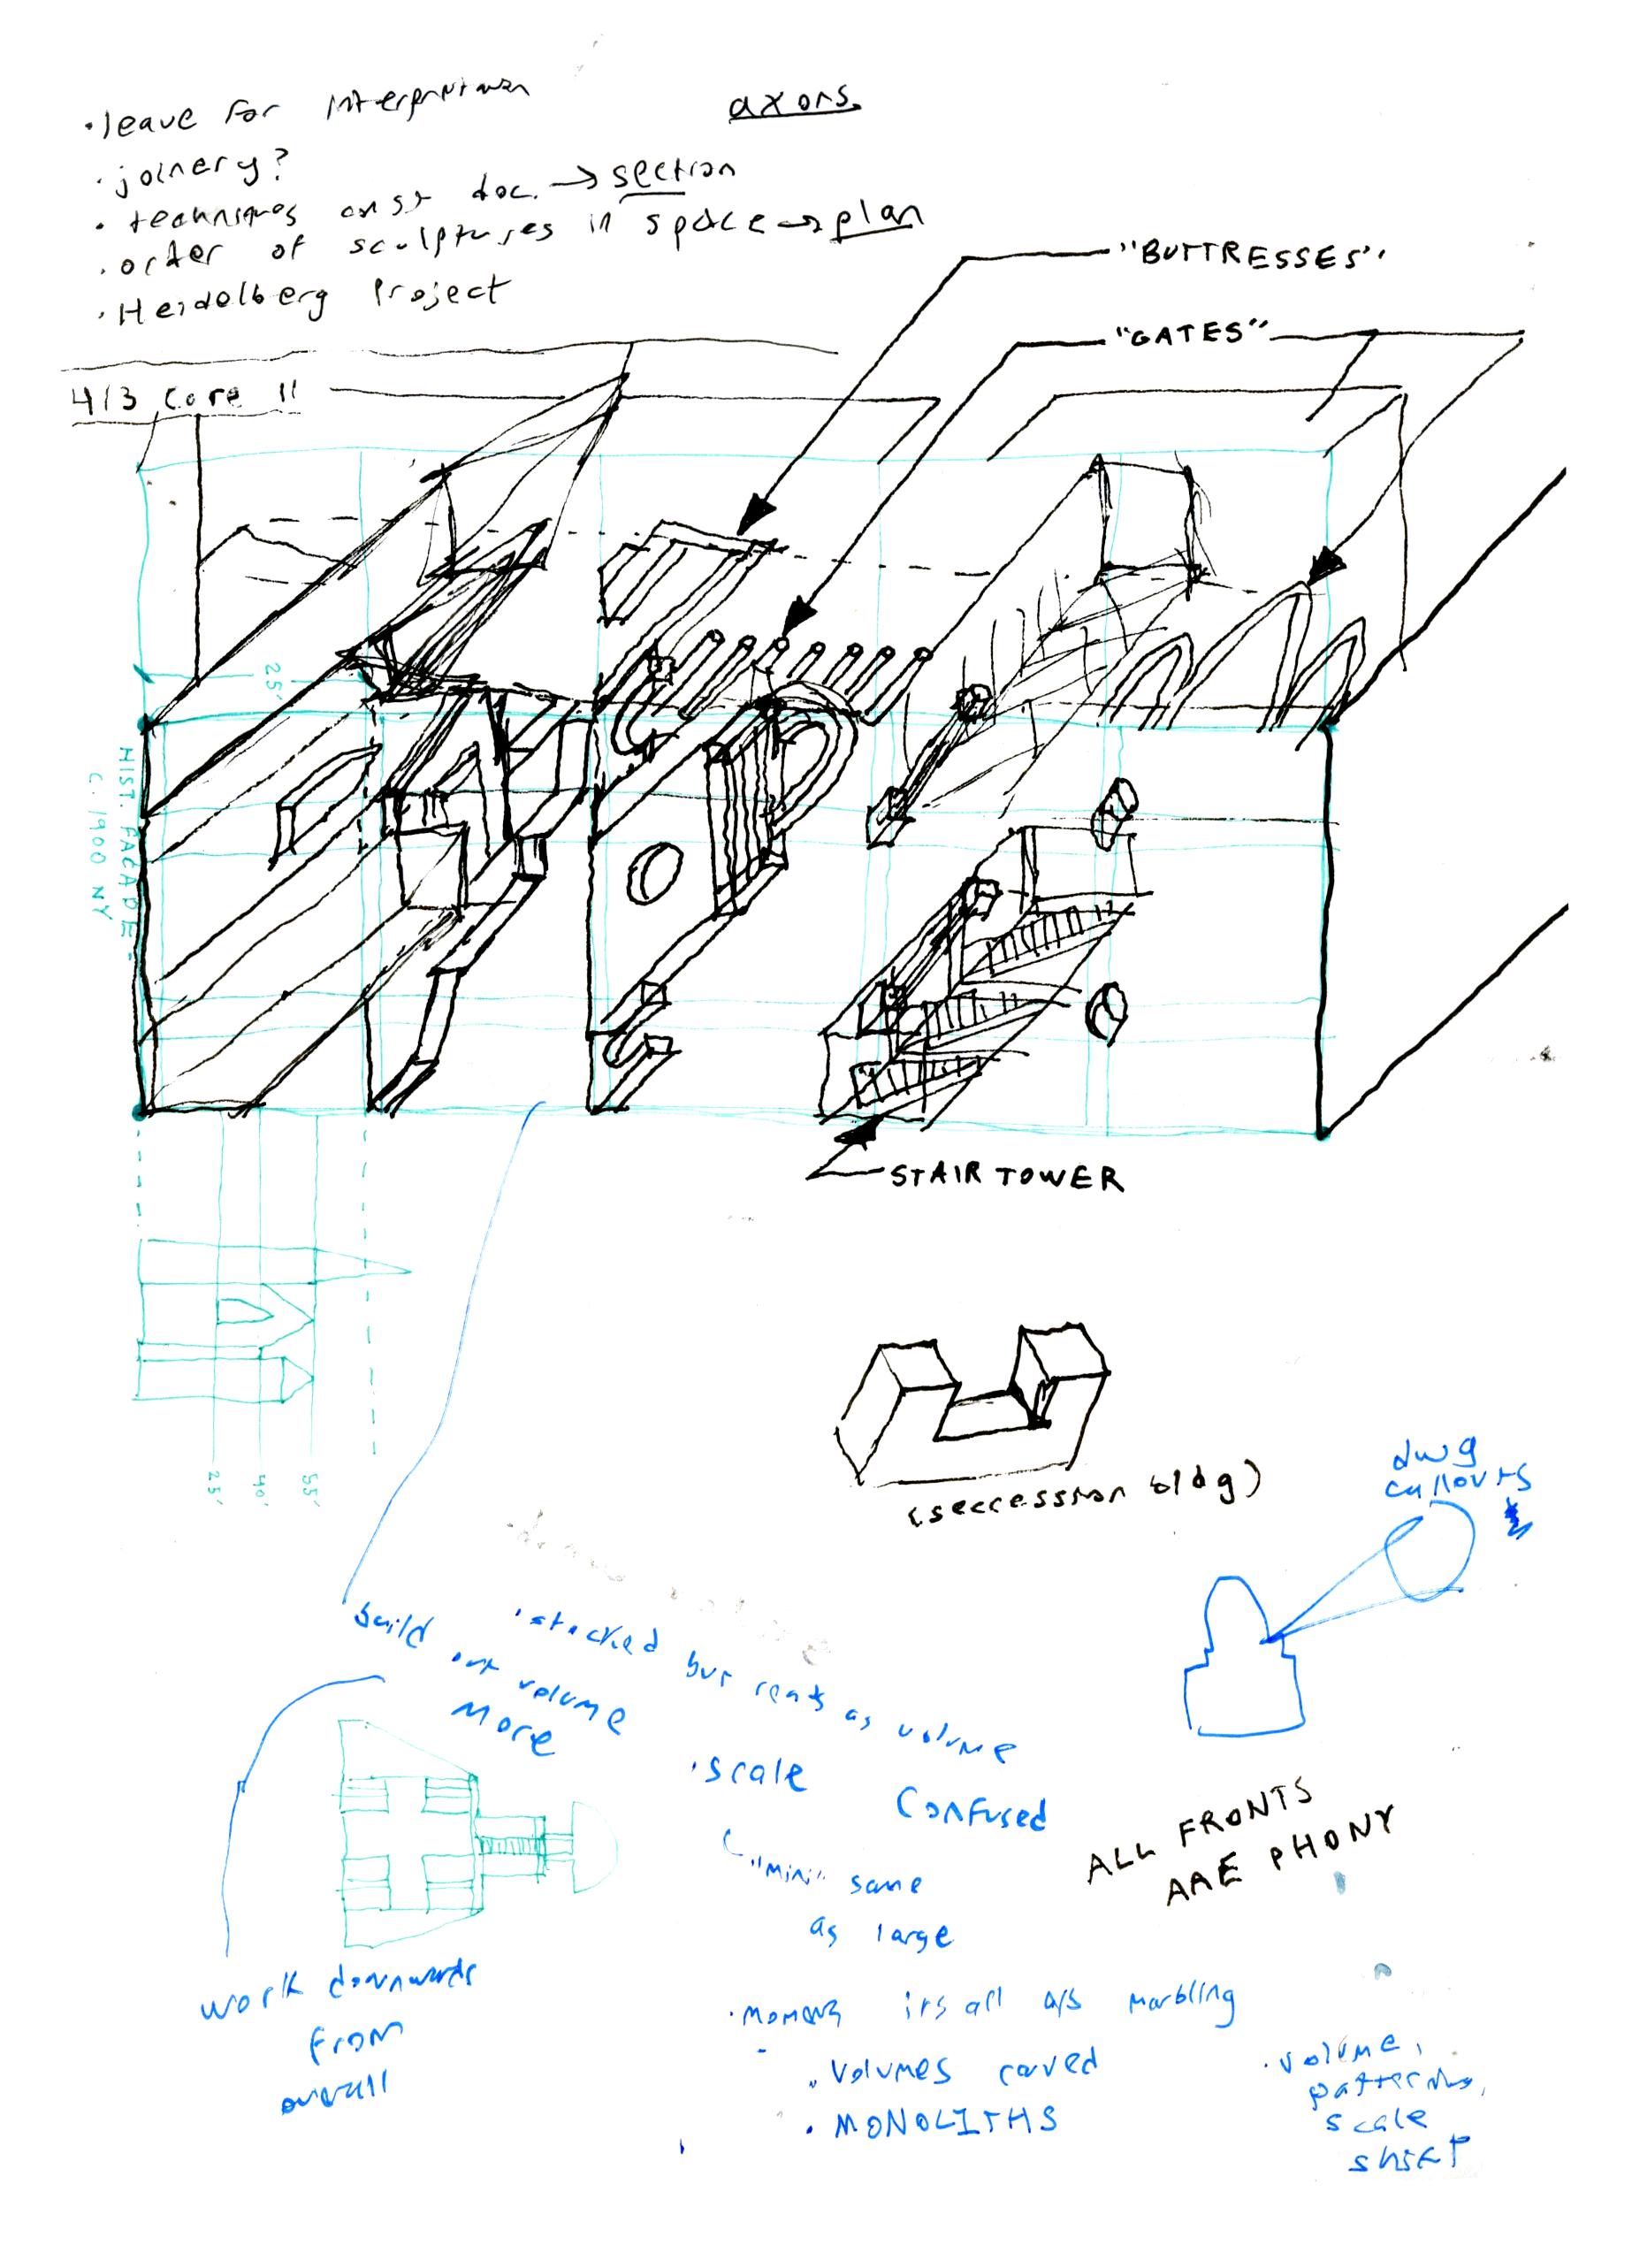 · leave for interpretation
axons.
· joinery?
· techniques const doc. → section
· order of sculptures in space → plan
· Heidelberg Project
"BUTTRESSES"
"GATES"
4/3 Core II
25'
HIST. FACADE -
C. 1900 NY
STAIR TOWER
25' 40' 55'
(seccession bldg)
dwg
callouts
build out volume
more
· stacked but reads as volume
· scale confused
"mini" same
as large
ALL FRONTS
ARE PHONY
work downwards
from
overall
its all marbling
· volumes carved
· MONOLITHS
· volume,
patterning,
scale
shift